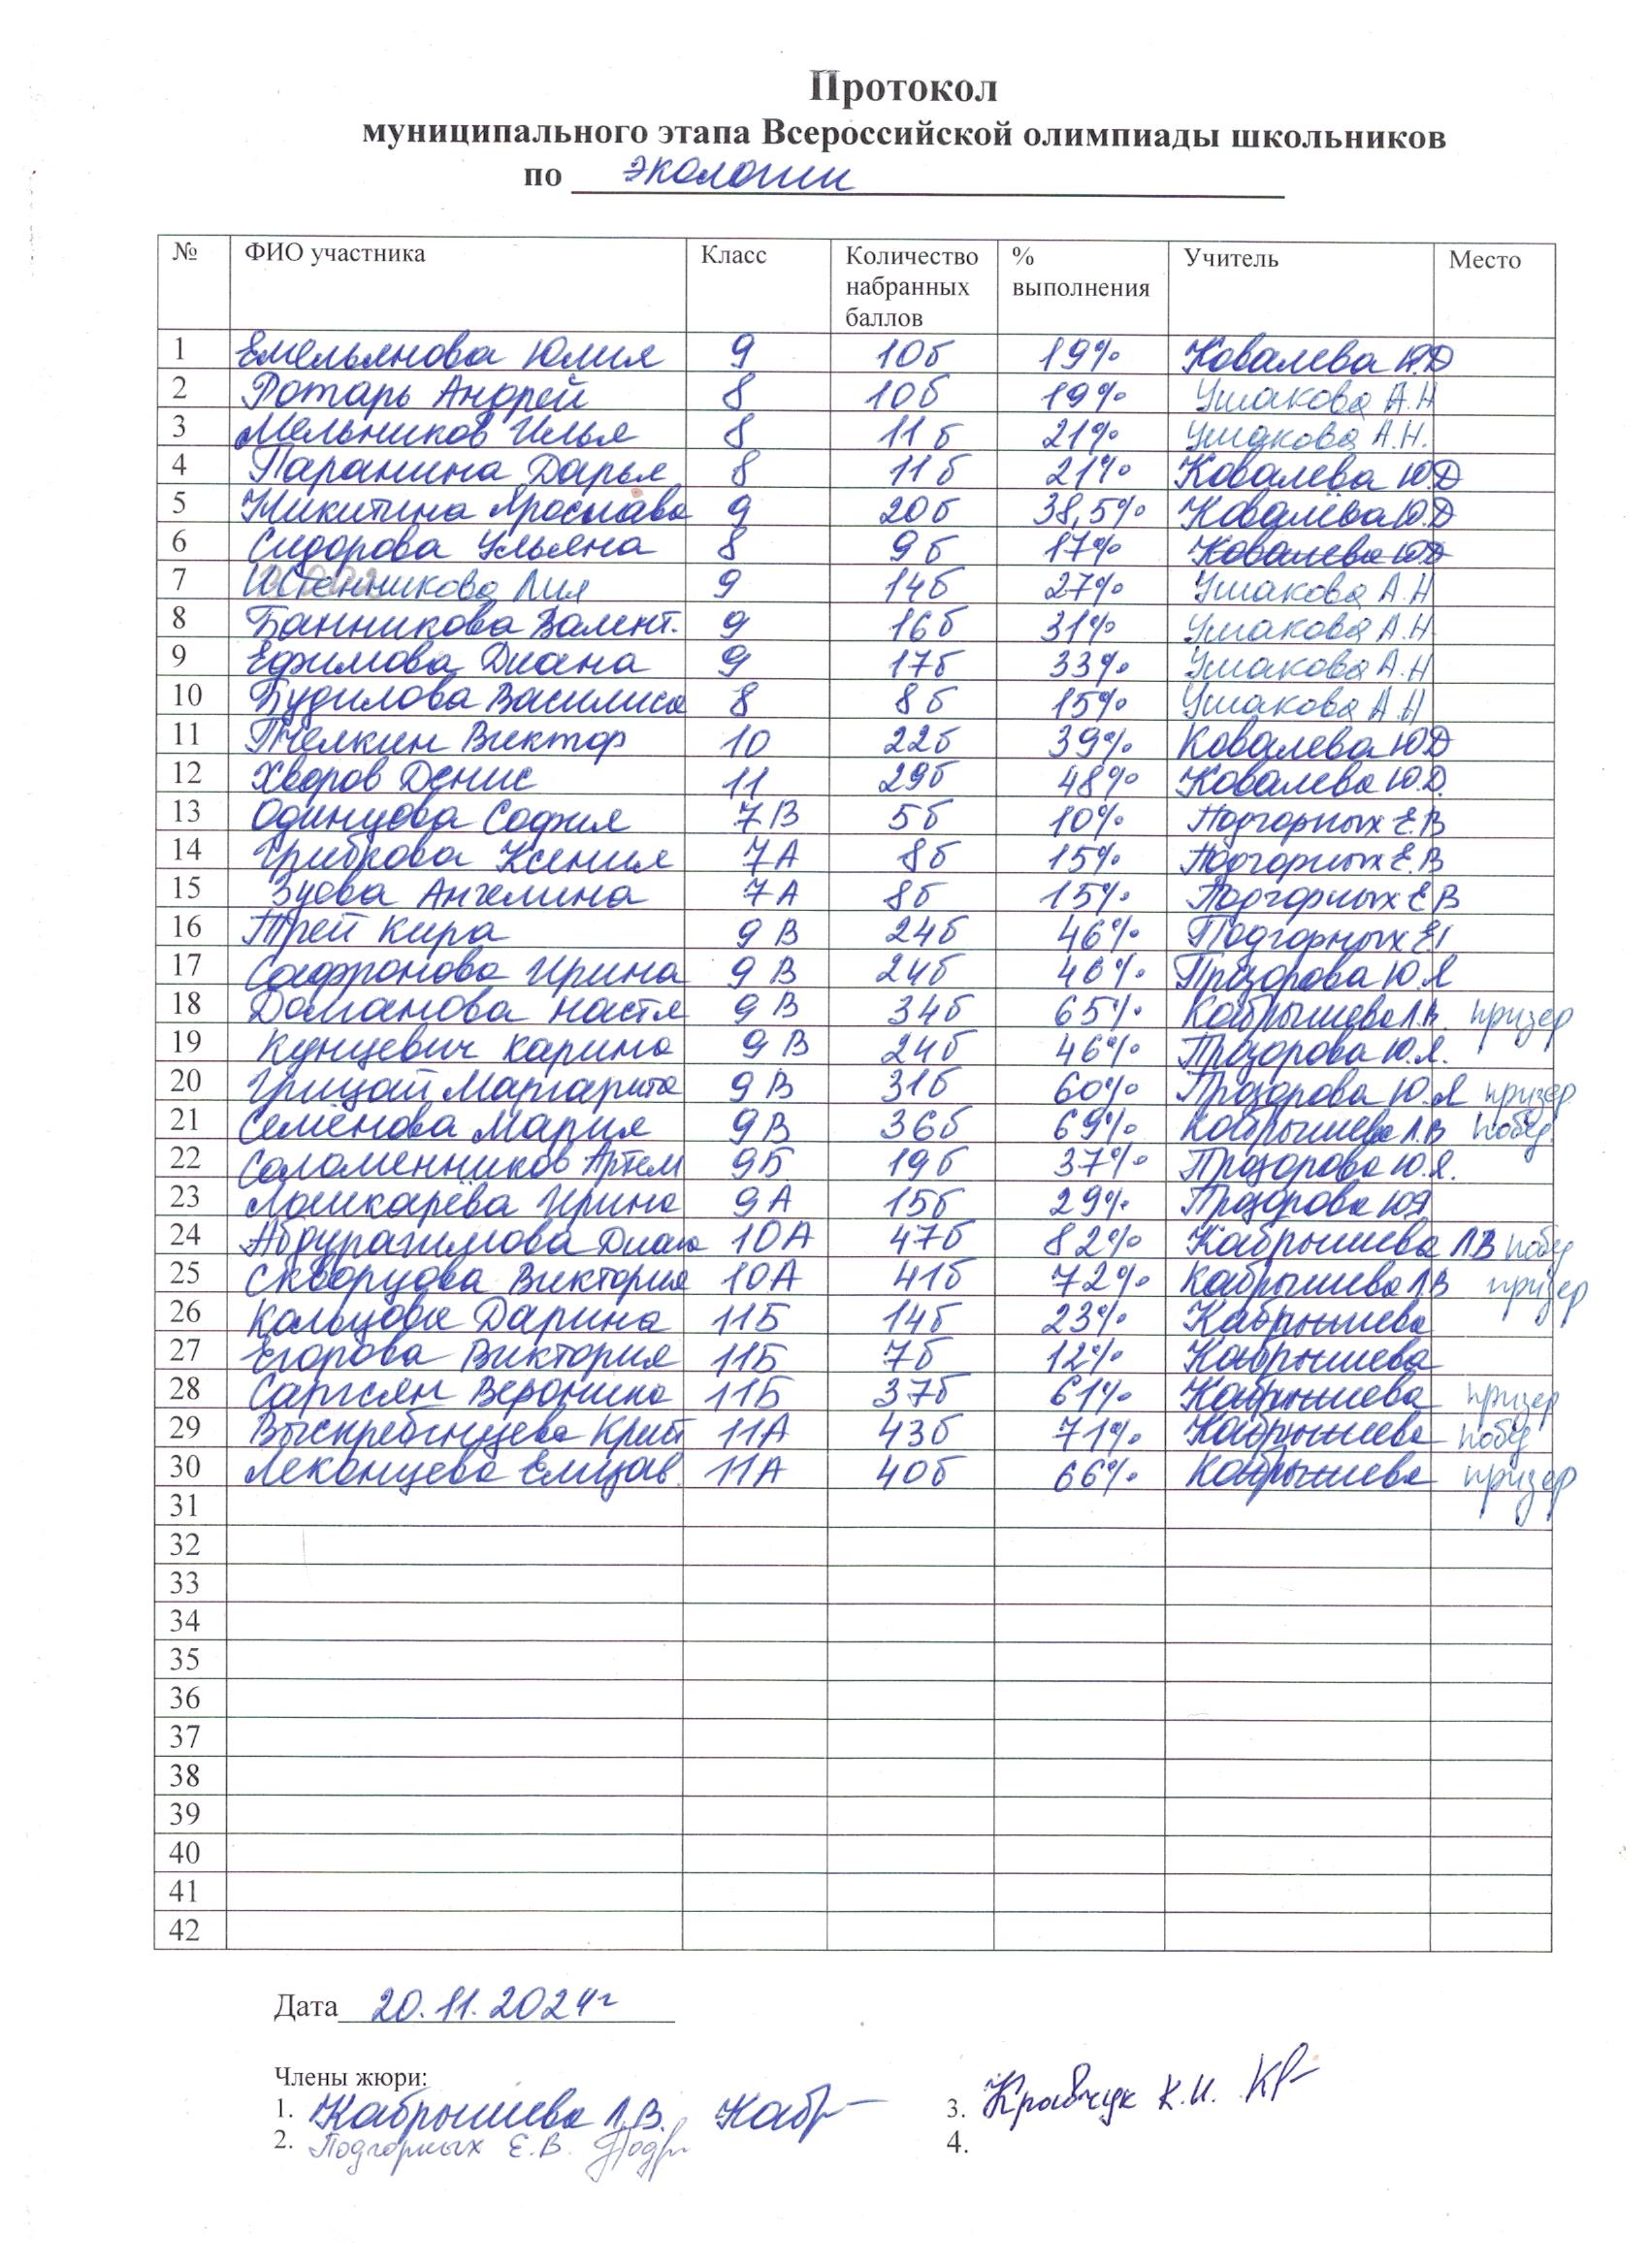 Протокол
муниципального этапа Всероссийской олимпиады школьников
по экологии
№ ФИО участника Класс Количество набранных баллов % выполнения Учитель Место
1 Емельянова Юлия 9 10б 19% Ковалева Ю.Д
2 Ротарь Андрей 8 10б 19% Ушакова А.Н
3 Мельников Илья 8 11б 21% Ушакова А.Н.
4 Паранина Дарья 8 11б 21% Ковалева Ю.Д
5 Никитина Ярослава 9 20б 38,5% Ковалёва Ю.Д
6 Сидорова Ульяна 8 9б 17% Ковалева Ю.Д
7 Лия 9 14б 27% Ушакова А.Н
8 Банникова Валент. 9 16б 31% Ушакова А.Н.
9 Ефимова Диана 9 17б 33% Ушакова А.Н
10 Будилова Василиса 8 8б 15% Ушакова А.Н
11 Пчелкин Виктор 10 22б 39% Ковалева Ю.Д
12 Хворов Денис 11 29б 48% Ковалева Ю.Д.
13 Одинцова София 7В 5б 10% Подгорных Е.В
14 Грибкова Ксения 7А 8б 15% Подгорных Е.В
15 Зуева Ангелина 7А 8б 15% Подгорных Е В
16 Трей Кира 9В 24б 46% Подгорных
17 Сафронова Ирина 9В 24б 46% Прозорова Ю.Я
18 Доманова Настя 9В 34б 65% Кабрышева Л.В. призер
19 Кунцевич Карина 9В 24б 46% Прозорова Ю.Я.
20 Грицай Маргарита 9В 31б 60% Прозорова Ю.Я призер
21 Семёнова Мария 9В 36б 69% Кабрышева Л.В побед.
22 Соломенников Артем 9Б 19б 37% Прозорова Ю.Я.
23 Лошкарёва Ирина 9А 15б 29% Прозорова ЮЯ
24 Абдурагимова Диана 10А 47б 82% Кабрышева Л В побед
25 Скворцова Виктория 10А 41б 72% Кабрышева Л В призер
26 Кольцова Дарина 11Б 14б 23% Кабрышева
27 Егорова Виктория 11Б 7б 12% Кабрышева
28 Саргсян Вероника 11Б 37б 61% Кабрышева призер
29 Выскребенцева Крист 11А 43б 71% Кабрышева побед
30 Леконцева Елизав. 11А 40б 66% Кабрышева призер
31
32
33
34
35
36
37
38
39
40
41
42
Дата 20.11.2024г
Члены жюри:
1. Кабрышева Л.В. Кабр
2. Подгорных Е.В. Подг
3. Кравчук К.И. Кр
4.